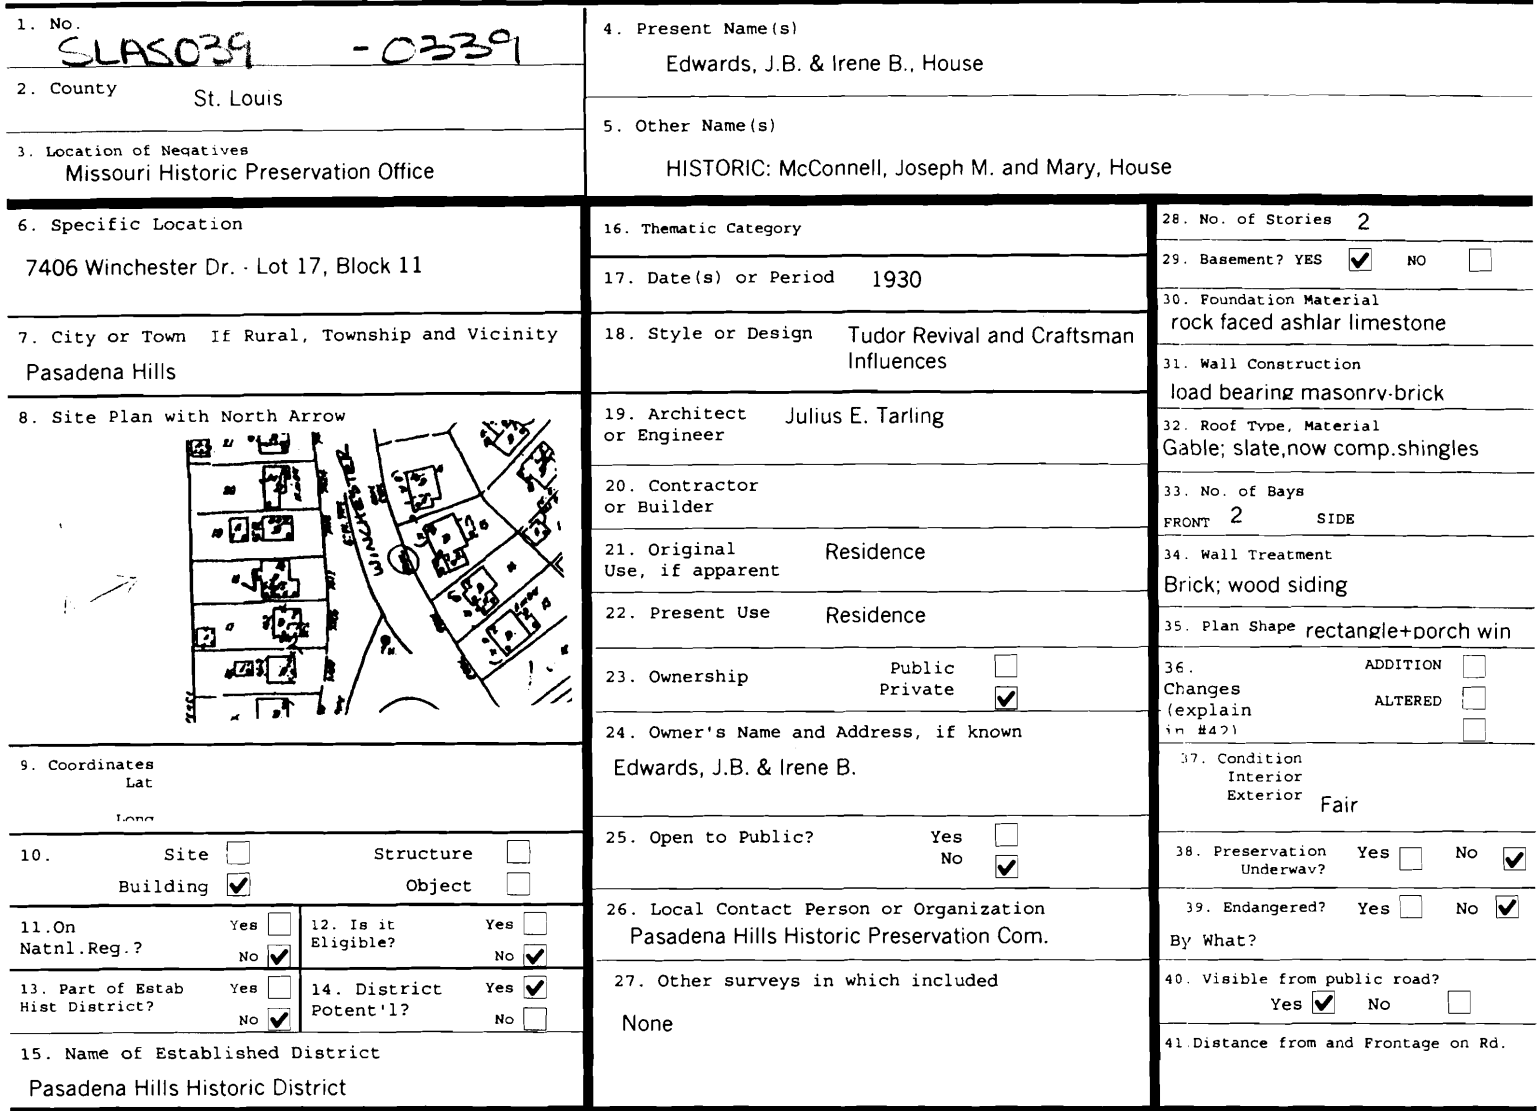 1. No.
SLAS039 -0339
2. County
St. Louis
3. Location of Negatives
Missouri Historic Preservation Office
4. Present Name(s)
Edwards, J.B. & Irene B., House
5. Other Name(s)
HISTORIC: McConnell, Joseph M. and Mary, House
6. Specific Location
7406 Winchester Dr. - Lot 17, Block 11
7. City or Town If Rural, Township and Vicinity
Pasadena Hills
8. Site Plan with North Arrow
WINCHESTER
9. Coordinates
Lat
Long
10. Site Structure
Building Object
11.On Yes
Natnl.Reg.? No
12. Is it Yes
Eligible? No
13. Part of Estab Yes
Hist District? No
14. District Yes
Potent'l? No
15. Name of Established District
Pasadena Hills Historic District
16. Thematic Category
17. Date(s) or Period 1930
18. Style or Design Tudor Revival and Craftsman
Influences
19. Architect Julius E. Tarling
or Engineer
20. Contractor
or Builder
21. Original Residence
Use, if apparent
22. Present Use Residence
23. Ownership Public
Private
24. Owner's Name and Address, if known
Edwards, J.B. & Irene B.
25. Open to Public? Yes
No
26. Local Contact Person or Organization
Pasadena Hills Historic Preservation Com.
27. Other surveys in which included
None
28. No. of Stories 2
29. Basement? YES NO
30. Foundation Material
rock faced ashlar limestone
31. Wall Construction
load bearing masonry-brick
32. Roof Type, Material
Gable; slate,now comp.shingles
33. No. of Bays
FRONT 2 SIDE
34. Wall Treatment
Brick; wood siding
35. Plan Shape rectangle+porch win
36. ADDITION
Changes
(explain ALTERED
in #42)
37. Condition
Interior
Exterior Fair
38. Preservation Yes No
Underway?
39. Endangered? Yes No
By What?
40. Visible from public road?
Yes No
41.Distance from and Frontage on Rd.